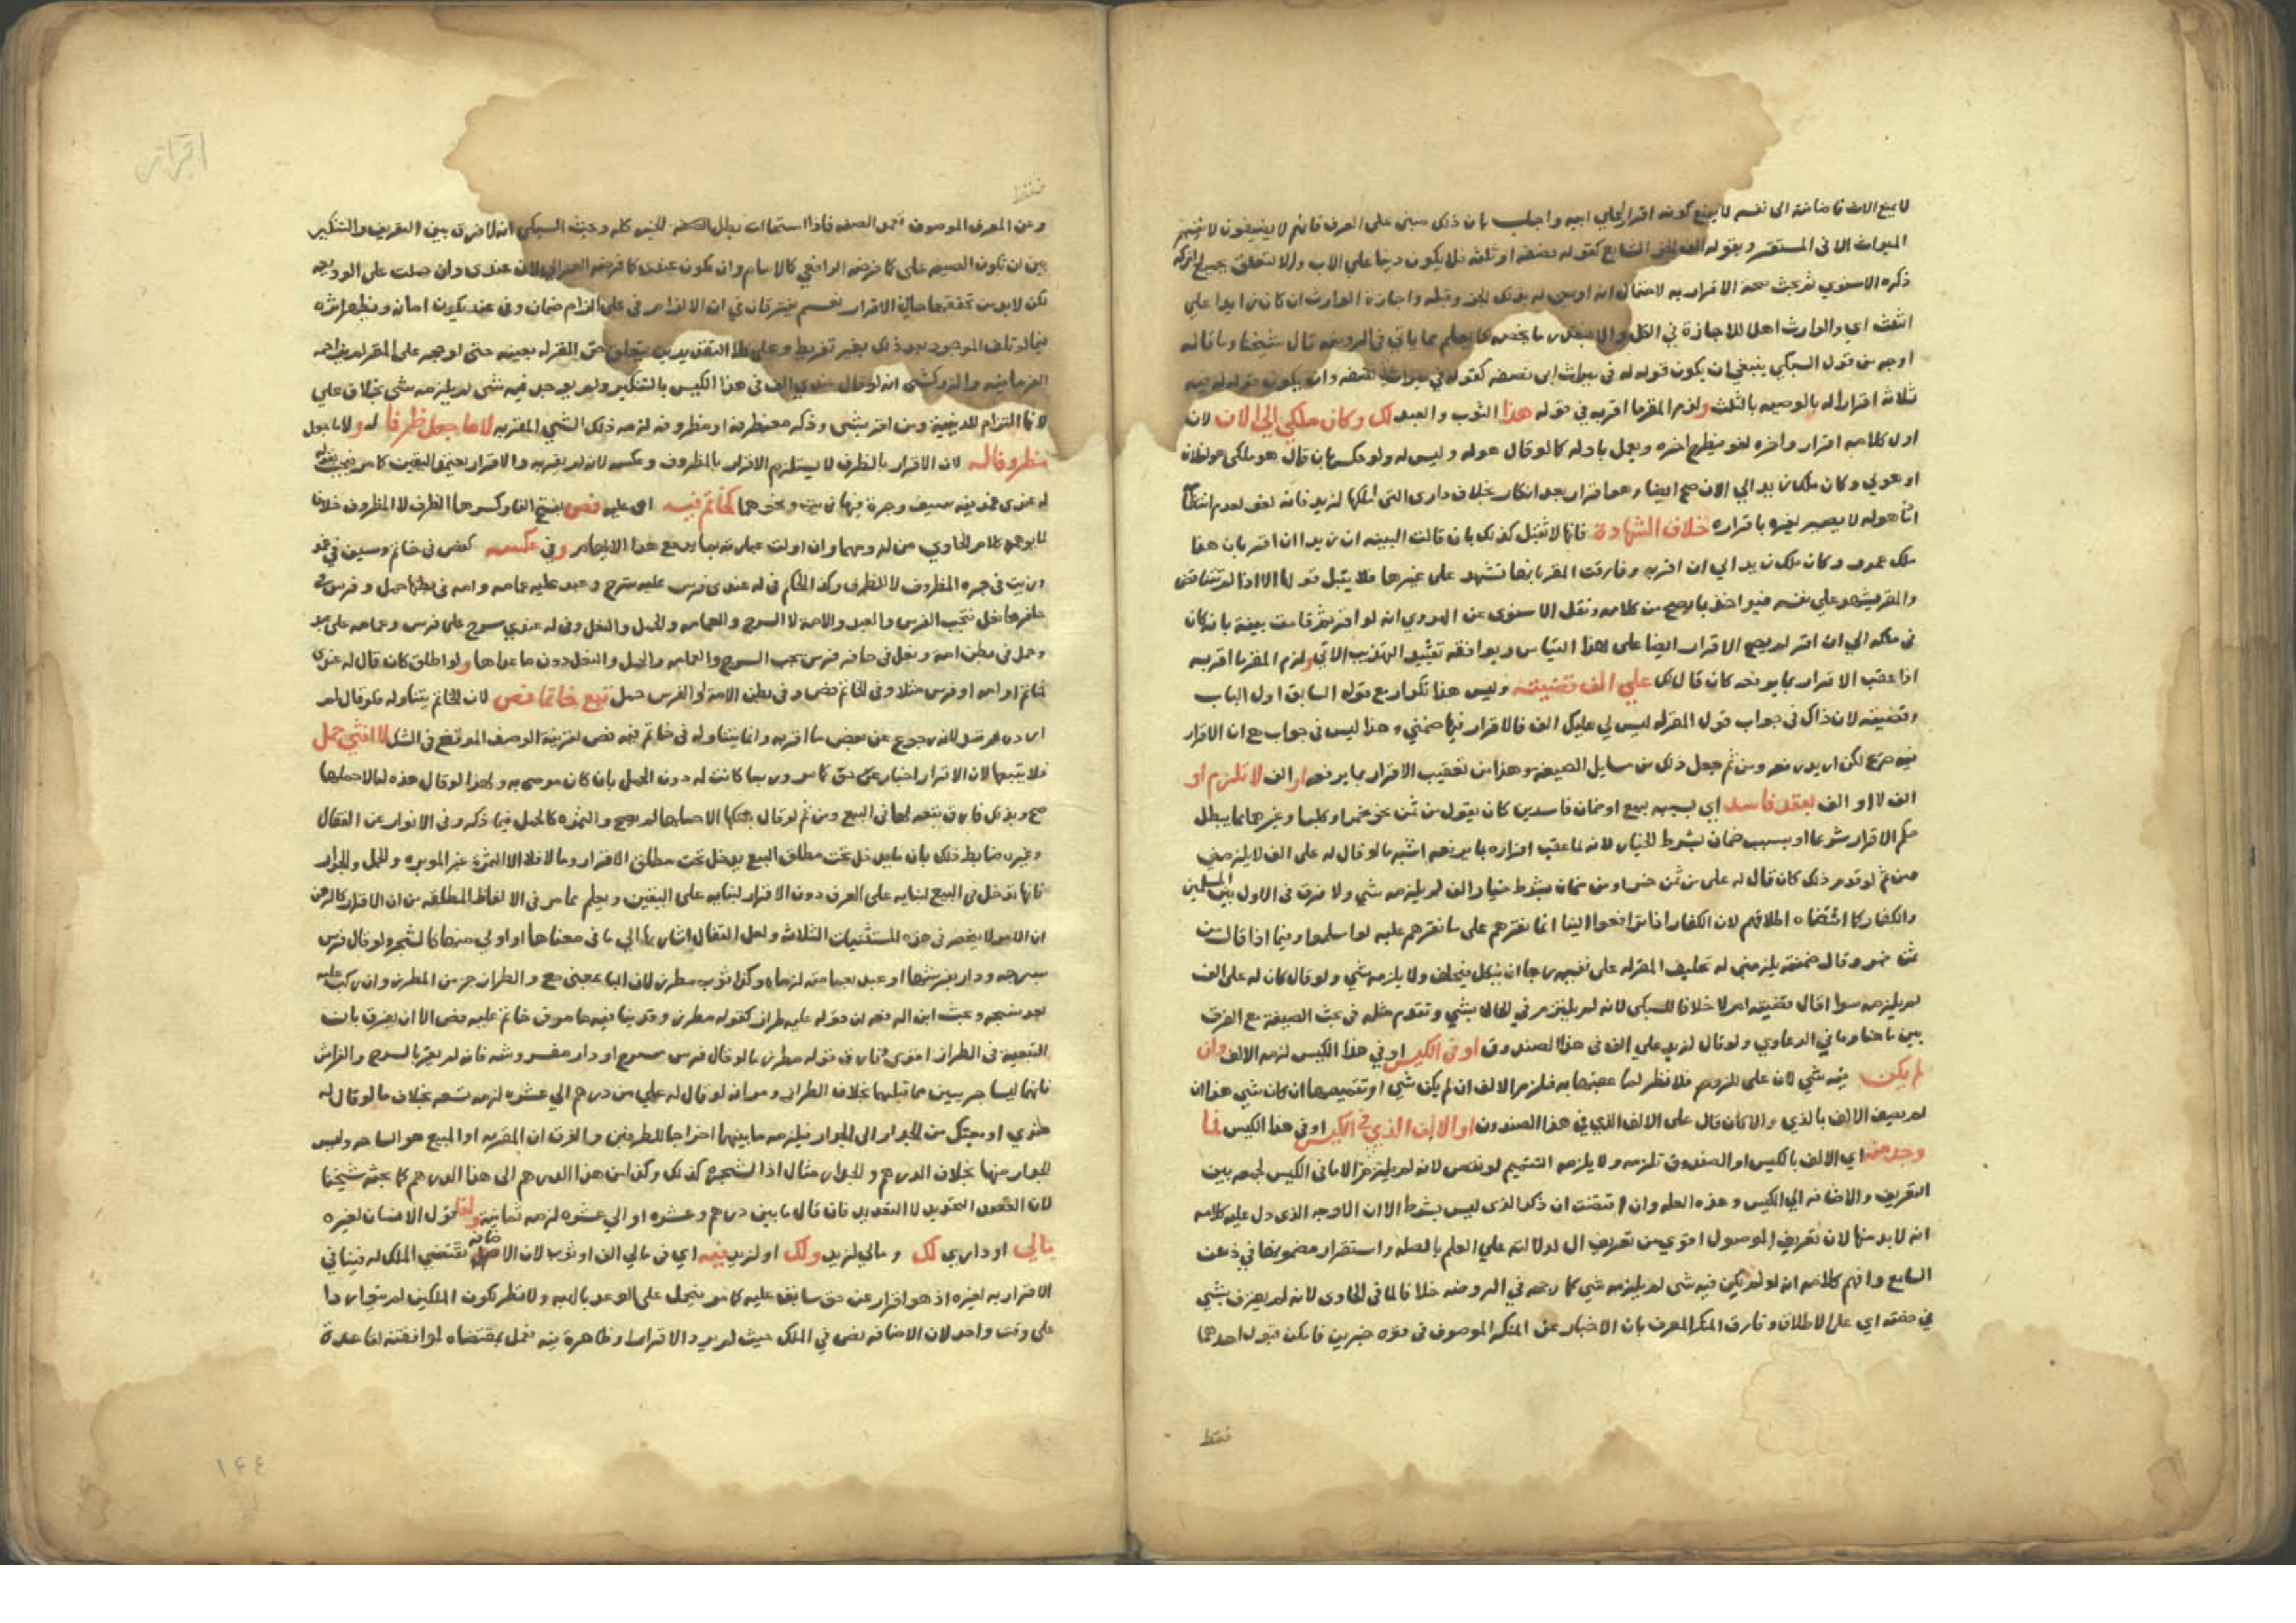 لا يمنع الارث فاضافته الى نفسه لا يمنع كونه اقرارا على ابيه واجيب بان ذلك مبنى على العرف فانهم لا يضيفون لانفسهم
الميراث الا في المستقر وبقوله الف الجزء الشايع كقوله نصفه او ثلثه فلا يكون دينا على الاب والا لتعلق بجميع التركة
ذكره الاسنوي ثم بحث صحة الاقرار به لاحتمال انه اوصى له بذلك الجزء وقبله واجازه الوارث ان كان زايدا على
الثلث اي والوارث اهل للاجازة في الكل والا فبقدر ما يخصه كما يعلم مما ياتي في الروضه قال شيخنا وما قاله
اوجه من قول السبكي ينبغي ان يكون قوله له في ميراث ابي نصفه كقوله في ميراث نصفه وان يكون قوله له فيه
ثلاثة اقرارا له بالوصيه بالثلث ولزم المقر ما اقر به في قوله هذا الثوب والعبد لك وكان ملكي الى الان لان
اول كلامه اقرار واخره لغو فيطرح اخره ويعمل باوله كما لو قال هو له وليس له ولو عكس بان قال هو ملكي هو لفلان
او هو لي وكان ملك زيد الي الان صح ايضا وهو اقرار بعد انكار بخلاف داري التي املكها لزيد فانه لغو لعدم انتظامه
اذ ما هو له لا يصير لغيره باقراره خلاف الشهادة فانها لا تقبل كذلك بان قالت البينه ان زيدا ان اقر بان هذا
ملك عمرو وكان ملك زيد الي ان اقر به وفارقت المقر بانها تشهد على غيرها فلا يقبل قولها الا اذا لم يتناقض
والمقر يشهد علي نفسه فيواخذ بما يصح من كلامه ونقل الاسنوى عن الهروي انه لو اقر ثم قامت بينة بانه كان
في ملكه الي ان اقر لم يصح الاقرار ايضا على هذا القياس ويوافقه تقييد التهذيب الاتي ولزم المقر ما اقر به
اذا عقب الاقرار بما يرفعه كان قال لك علي الف قضيته وليس هذا تكرار مع قوله السابق اول الباب
وقضيته لان ذاك في جواب قول المقر له ليس لي عليك الف فالاقرار فيها ضمني وهذا ليس في جواب مع ان الاقرار
فيه صريح لكن اريد رفعه ومن ثم جعل ذلك من مسايل الصيغه وهذا من تعقيب الاقرار بما يرفعه او الف لا تلزم او
الف لا او الف بعقد فاسد اي بسببه بيع او ضمان فاسدين كان يقول من ثمن نحو خمر او كلب وغيرها مما يبطل
حكم الاقرار شرعا او بسبب ضمان بشرط الخيار لانه لما عقب اقراره بما يرفعه اشبه ما لو قال له على الف لا يلزمني
ومن ثم لو قدم ذلك كان قال له على من ثمن خمر او من ضمان بشرط خيار الف لم يلزمه شي ولا فرق في الاول بين المسلمين
والكفار كما اقتضاه اطلاقهم لان الكفار اذا ترافعوا الينا انما نقرهم على ما نقرهم عليه لو اسلموا وفيما اذا قال من
ثمن خمر وقال ظننته يلزمني له تحليف المقر له على نفيه رجا ان ينكل فيحلف ولا يلزمه شي ولو قال كان له على الف
لم يلزمه سوا اقال قضيته ام لا خلافا للسبكي لانه لم يلتزم في الحال بشي وتقدم مثله في بحث الصيغة مع الفرق
بين ما هنا وما في الدعاوي ولو قال لزيد على الف في هذا الصندوق او في الكيس او في هذا الكيس لزمه الالف وان
لم يكن فيه شي لان على للزوم فلا نظر لما عقبها به فلزم الالف ان لم يكن شي او تتميمها ان كان شي هذا ان
لم يصف الالف بالذي والا كان قال على الالف الذي في هذا الصندوق او الالف الذي في الكيس او في هذا الكيس فما
وجد منه اي الالف بالكيس او الصندوق تلزمه ولا يلزمه التتميم لو نقص لانه لم يلتزم الا ما في الكيس لجمعه بين
التعريف والاضافه الي الكيس وهذه العله وان اقتضت ان ذكر الذى ليس بشرط الا ان الاوجه الذى دل عليه كلامه
انه لا بد منها لان تعريف الموصول اقوي من تعريف ال لدلالته علي العلم بالصله واستقرار مضمونها في ذهن
السامع وافهم كلامه انه لو لم يكن فيه شى لم يلزمه شي كما رجحه في الروضه خلافا لما في الحاوى لانه لم يعترف بشي
في ذمته اي على الاطلاق وفارق المنكر المعرف بان الاخبار عن المنكر الموصوف في قوه خبرين فامكن قبول احدهما
فقط
فقط
وعن المعرف الموصوف تعمد الصفه فاذا استحالت بطل الخبر كله وبحث السبكي انه لا فرق بين التعريف والتنكير
بين ان تكون الصيغه على كما فرضه الرافعي كالامام وان تكون عندى كما فرضه الغزالي لان عندى وان حملت على الوديعه
لكن لا بد من تحققها حال الاقرار نعم يفترقان في ان الالزام في على الزام ضمان وفي عند يكون امانه ويظهر اثره
فيما لو تلف الموجود بعد ذلك بغير تفريط وعلى هذا التقديرين يتعلق حق المقر له بعينه حتى لو حجر على المقر لم يزاحمه
الغرما فيه والزركشي انه لو قال عندي الف في هذا الكيس بالتنكير ولم يوجد فيه شى لم يلزمه شى بخلاف علي
لانها التزام للدينية ومن اقر بشى وذكره مع ظرفه او مظروفه لزمه ذلك الشي المقر به لا ما جعل ظرفا له ولا ما جعل
مظروفا له لان الاقرار بالظرف لا يستلزم الاقرار بالمظروف وعكسه لانه لم يقر به والاقرار يعتمد اليقين كما مر فيجب بقوله
له عندى غمد فيه سيف وجرة فيها زيت ونحوهما كخاتم فيه اى عليه فص بفتح الفا وكسرها الظرف لا المظروف خلافا
لما يوهمه كلام الحاوي من لزومهما وان اولت عبارته بما يدفع هذا الايهام وفي عكسه كفص في خاتم وسيف في غمد
وزيت في جره المظروف لا الظرف وكذا الحكم في له عندى فرس عليه سرج وعبد عليه عمامه وامه في بطنها حمل وفرس في
حافرها نعل فتجب الفرس والعبد والامه لا السرج والعمامه والحمل والنعل وفي له عندي سرج على فرس وعمامه على عبد
وحمل في بطن امه ونعل في حافر فرس يجب السرج والعمامه والحمل والنعل دون ما عداها ولو اطلق كان قال له عندى
خاتم او امه او فرس مثلا وفي الخاتم فص وفي بطن الامه او الفرس حمل تبع خاتما فص لان الخاتم يتناوله فلو قال لم
ارده لم يقبل لانه رجوع عن بعض ما اقر به وانما يتناوله في خاتم فيه فص لقرينة الوصف الموقع في الشك لا انثى حمل
فلا يتبعها لان الاقرار اخبار عن حق كما مر وربما كانت له دون الحمل بان كان موصى به ولهذا لو قال هذه لها لا حملها
صح وبذلك فارق تبعه لها في البيع ومن ثم لو قال بعتكها الا حملها لم يصح والثمره كالحمل فيما ذكر وفي الانوار عن القفال
وغيره ضابط ذلك بان ما يدخل تحت مطلق البيع يدخل تحت مطلق الاقرار وما لا فلا الا الثمرة غير الموبره والحمل والجدار
فانها تدخل في البيع لبنايه على العرف دون الاقرار لبنايه على اليقين ويعلم مما مر في الالفاظ المطلقه من ان الاقرار كالرهن
ان الامر لا ينحصر في هذه المستثنيات الثلاث ولعل القفال اشار بها الي ما في معناها او اولي منها كالشجره ولو قال فرس
بسرجه ودار بفرشها او عبد بعمامته لزماه وكذا ثوب مطرز لان البا بمعنى مع والطراز جز من المطرز وان ركب عليه
بعد نسجه وبحث ابن الرفعه ان قوله عليه طراز كقوله مطرز وقد ينافيه ما مر في خاتم عليه فص الا ان يفرق بان
التبعية في الطراز اقوى وفارق قوله مطرز ما لو قال فرس مسرج او دار مفروشه فانه لم يقر بالسرج والفراش
فانهما ليسا جزيين مما قبلهما بخلاف الطراز ومر انه لو قال له علي من درهم الي عشره لزمه تسعه بخلاف ما لو قال له
عندي او بعتك من الجدار الى الجدار فيلزمه ما بينهما اخراجا للطرفين والفرق ان المقر به او المبيع هو الساحه وليس
الجدار منها بخلاف الدرهم والجدار مثال اذ الشجره كذلك وكذا من هذا الدرهم الى هذا الدرهم كما بحثه شيخنا
لان القصد التحديد لا التقدير فان قال ما بين درهم وعشره او الي عشره لزمه ثمانية ولغا قول الانسان لغيره
مالي او داري لك ومالي لزيد ولك او لزيد فيه اي في مالي الف او ثوب لان الاضافه تقتضي الملك له فينافي
الاقرار به لغيره اذ هو اقرار عن حق سابق عليه كما مر فيحمل على الوعد بالهبه ولا نظر لكون الملكين لم يتواردا
على وقت واحد لان الاضافه نص في الملك حيث لم يرد الاقرار وظاهرة فيه فعمل بمقتضاه لموافقته لقاعدة
اقرار
١٤٤